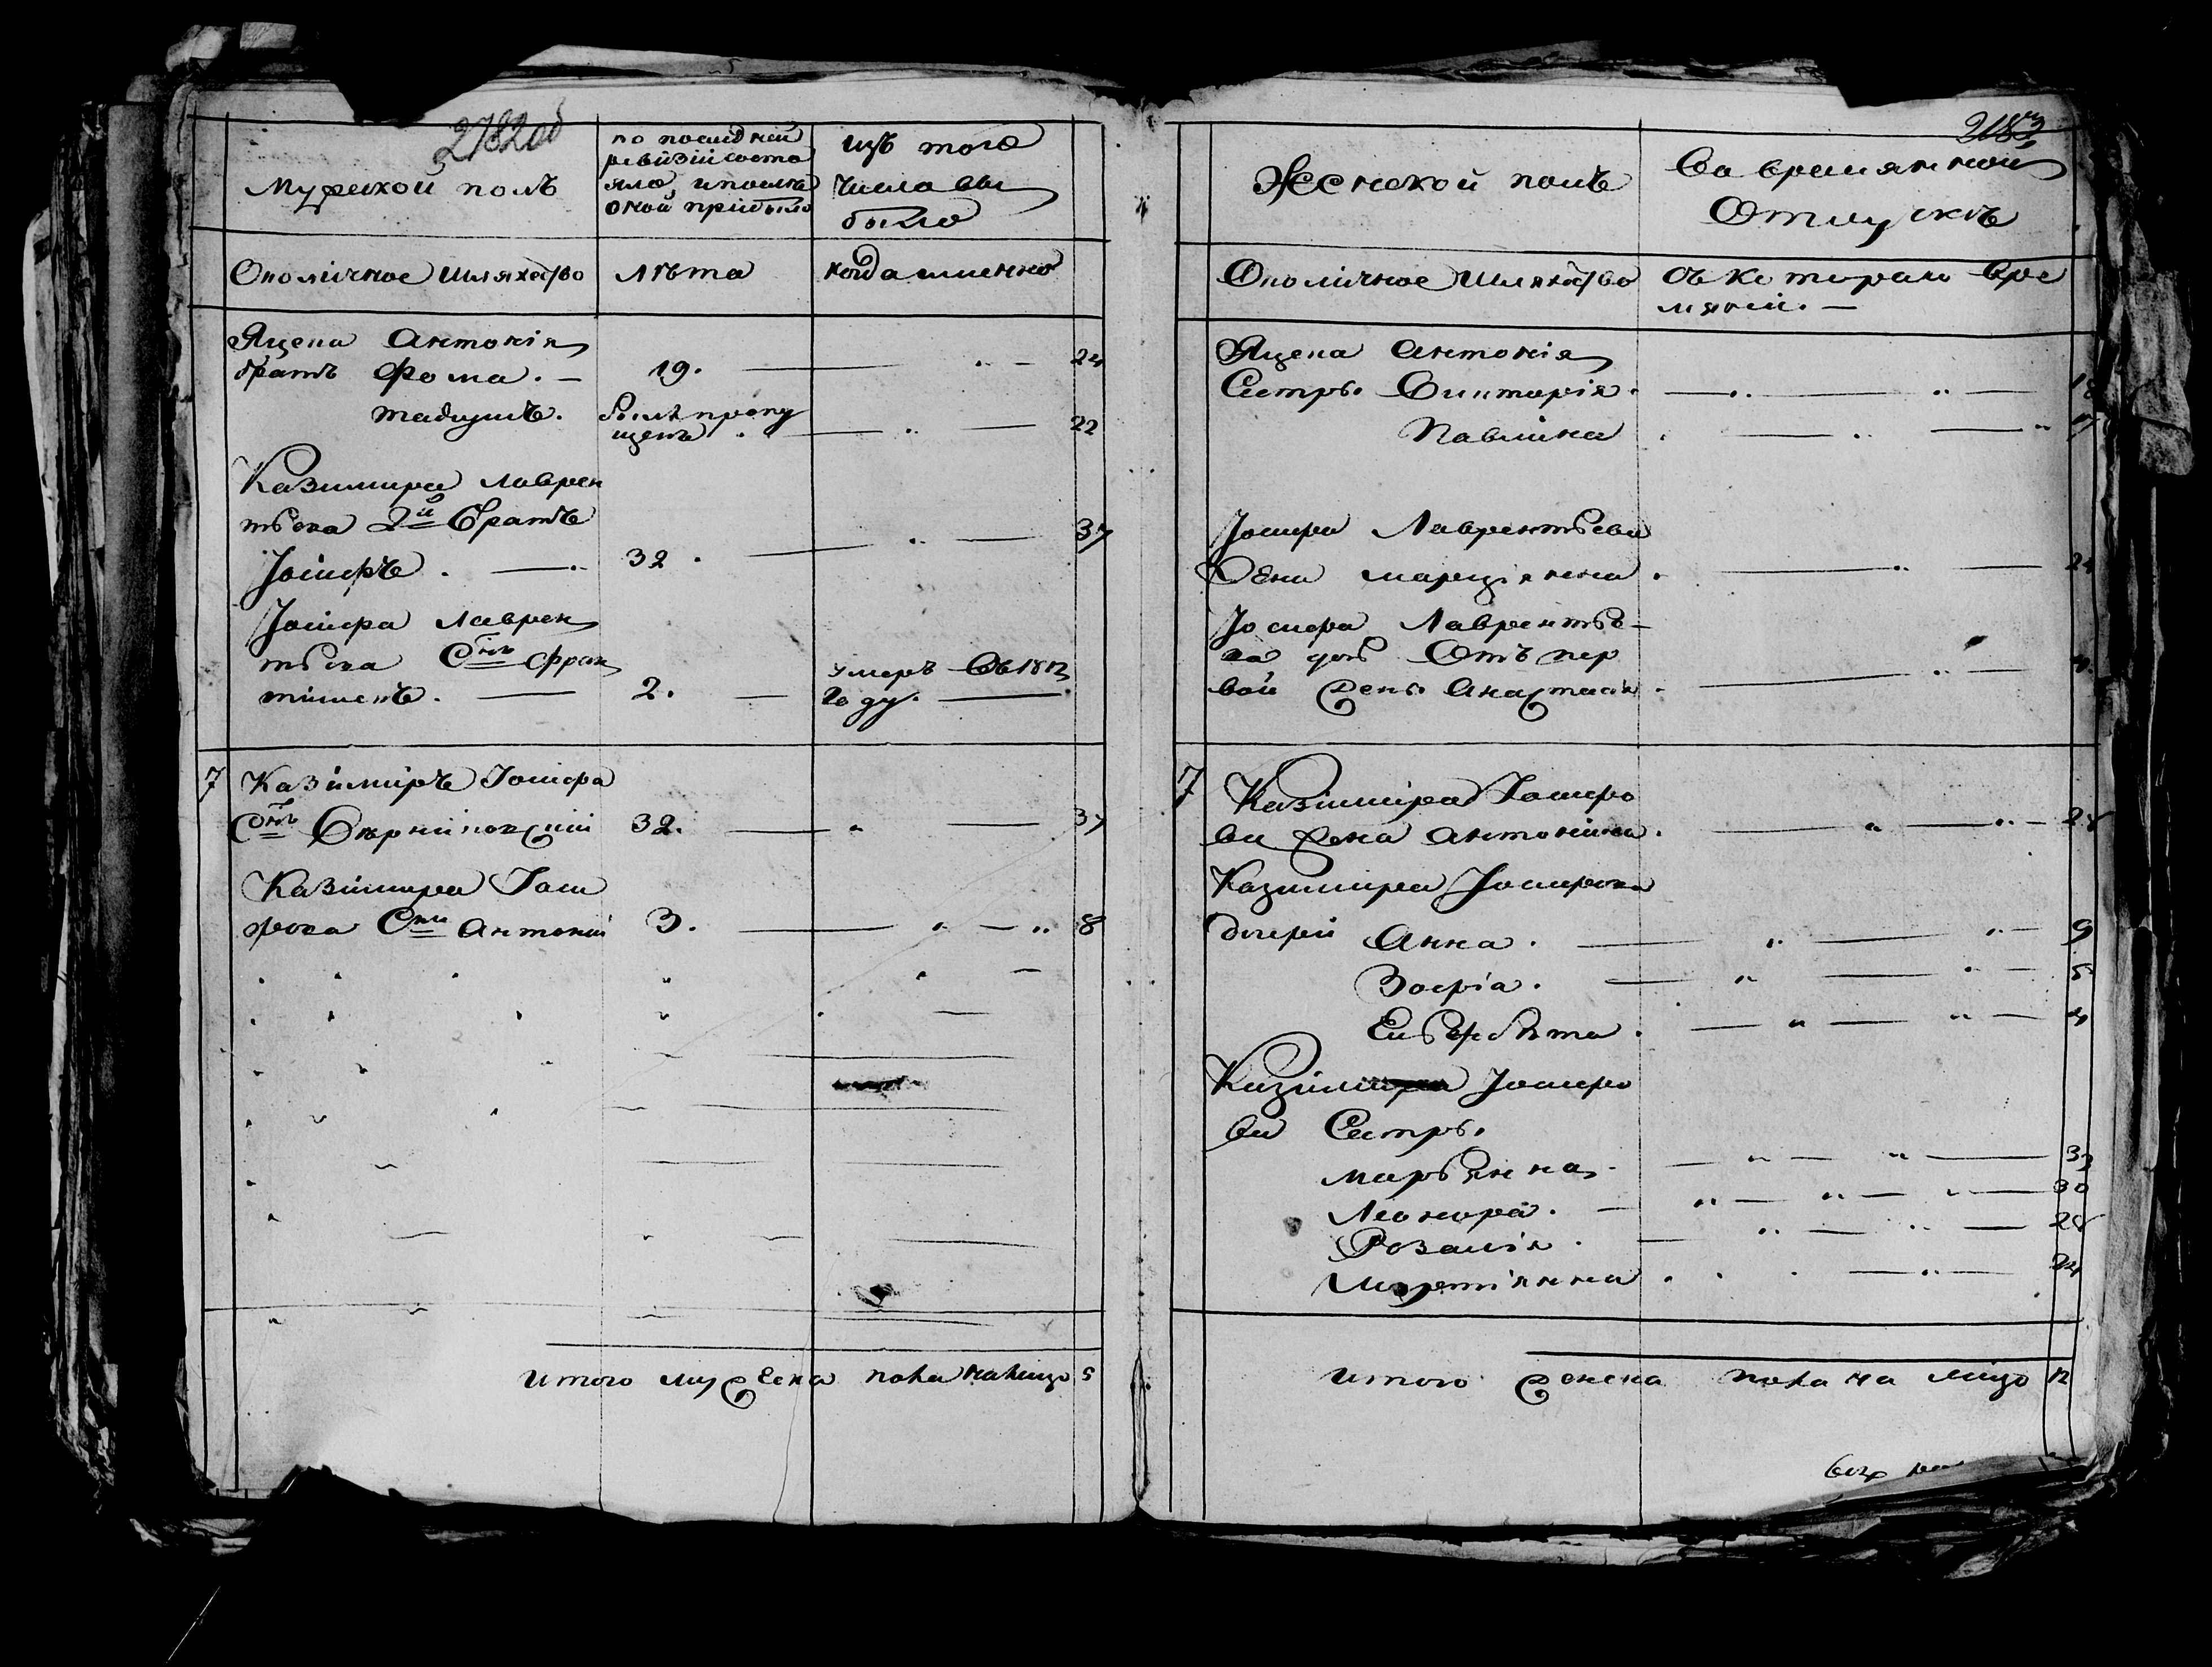 2782 об
Мужеской полъ
по последней
ревизіи состо
яло, и после
оной прибыло
изъ того
числа вы
было
Околичное Шляхество
лѣта
когда именно
Яцента Антонія
братъ Фома. — 19. — 24
Тадеушъ. былъ пропу
щенъ. — 22
Казимира Лаврен
тьева 2й братъ
Іосифъ. — 32. — 37
Іосифа Лаврен
тьева Снъ Фран
тишекъ. — 2. — умеръ въ 1812
году. —
7 Казимиръ Іосифа
Снъ 32. — 37
Казимира Іоси
фова Снъ Антоній 3. — 8
итого мужеска пола на лицо 5
Женской полъ
Во временной
Отлуккѣ
Околичное Шляхество
Съ которого вре
мяни. —
Антонія
Сестры Виктория. — 18
Павлина — 17
Іосифа Лаврентьева
Жена Марціянна. — 24
Іосифа Лаврентье-
ва дочь Отъ пер
вой жены Анастасія. —
7 Казимира Іосифо
ва жена Антонина. — 28
Казимира Іосифова
дочери Анна. — 9
Зофія. — 5
Ельжбѣта. — 4
Казимира Іосифо
ва Сестры
Марьянна. — 33
Леонора. — 30
Розалія. — 28
— 24
итого женска пола на лицо 12